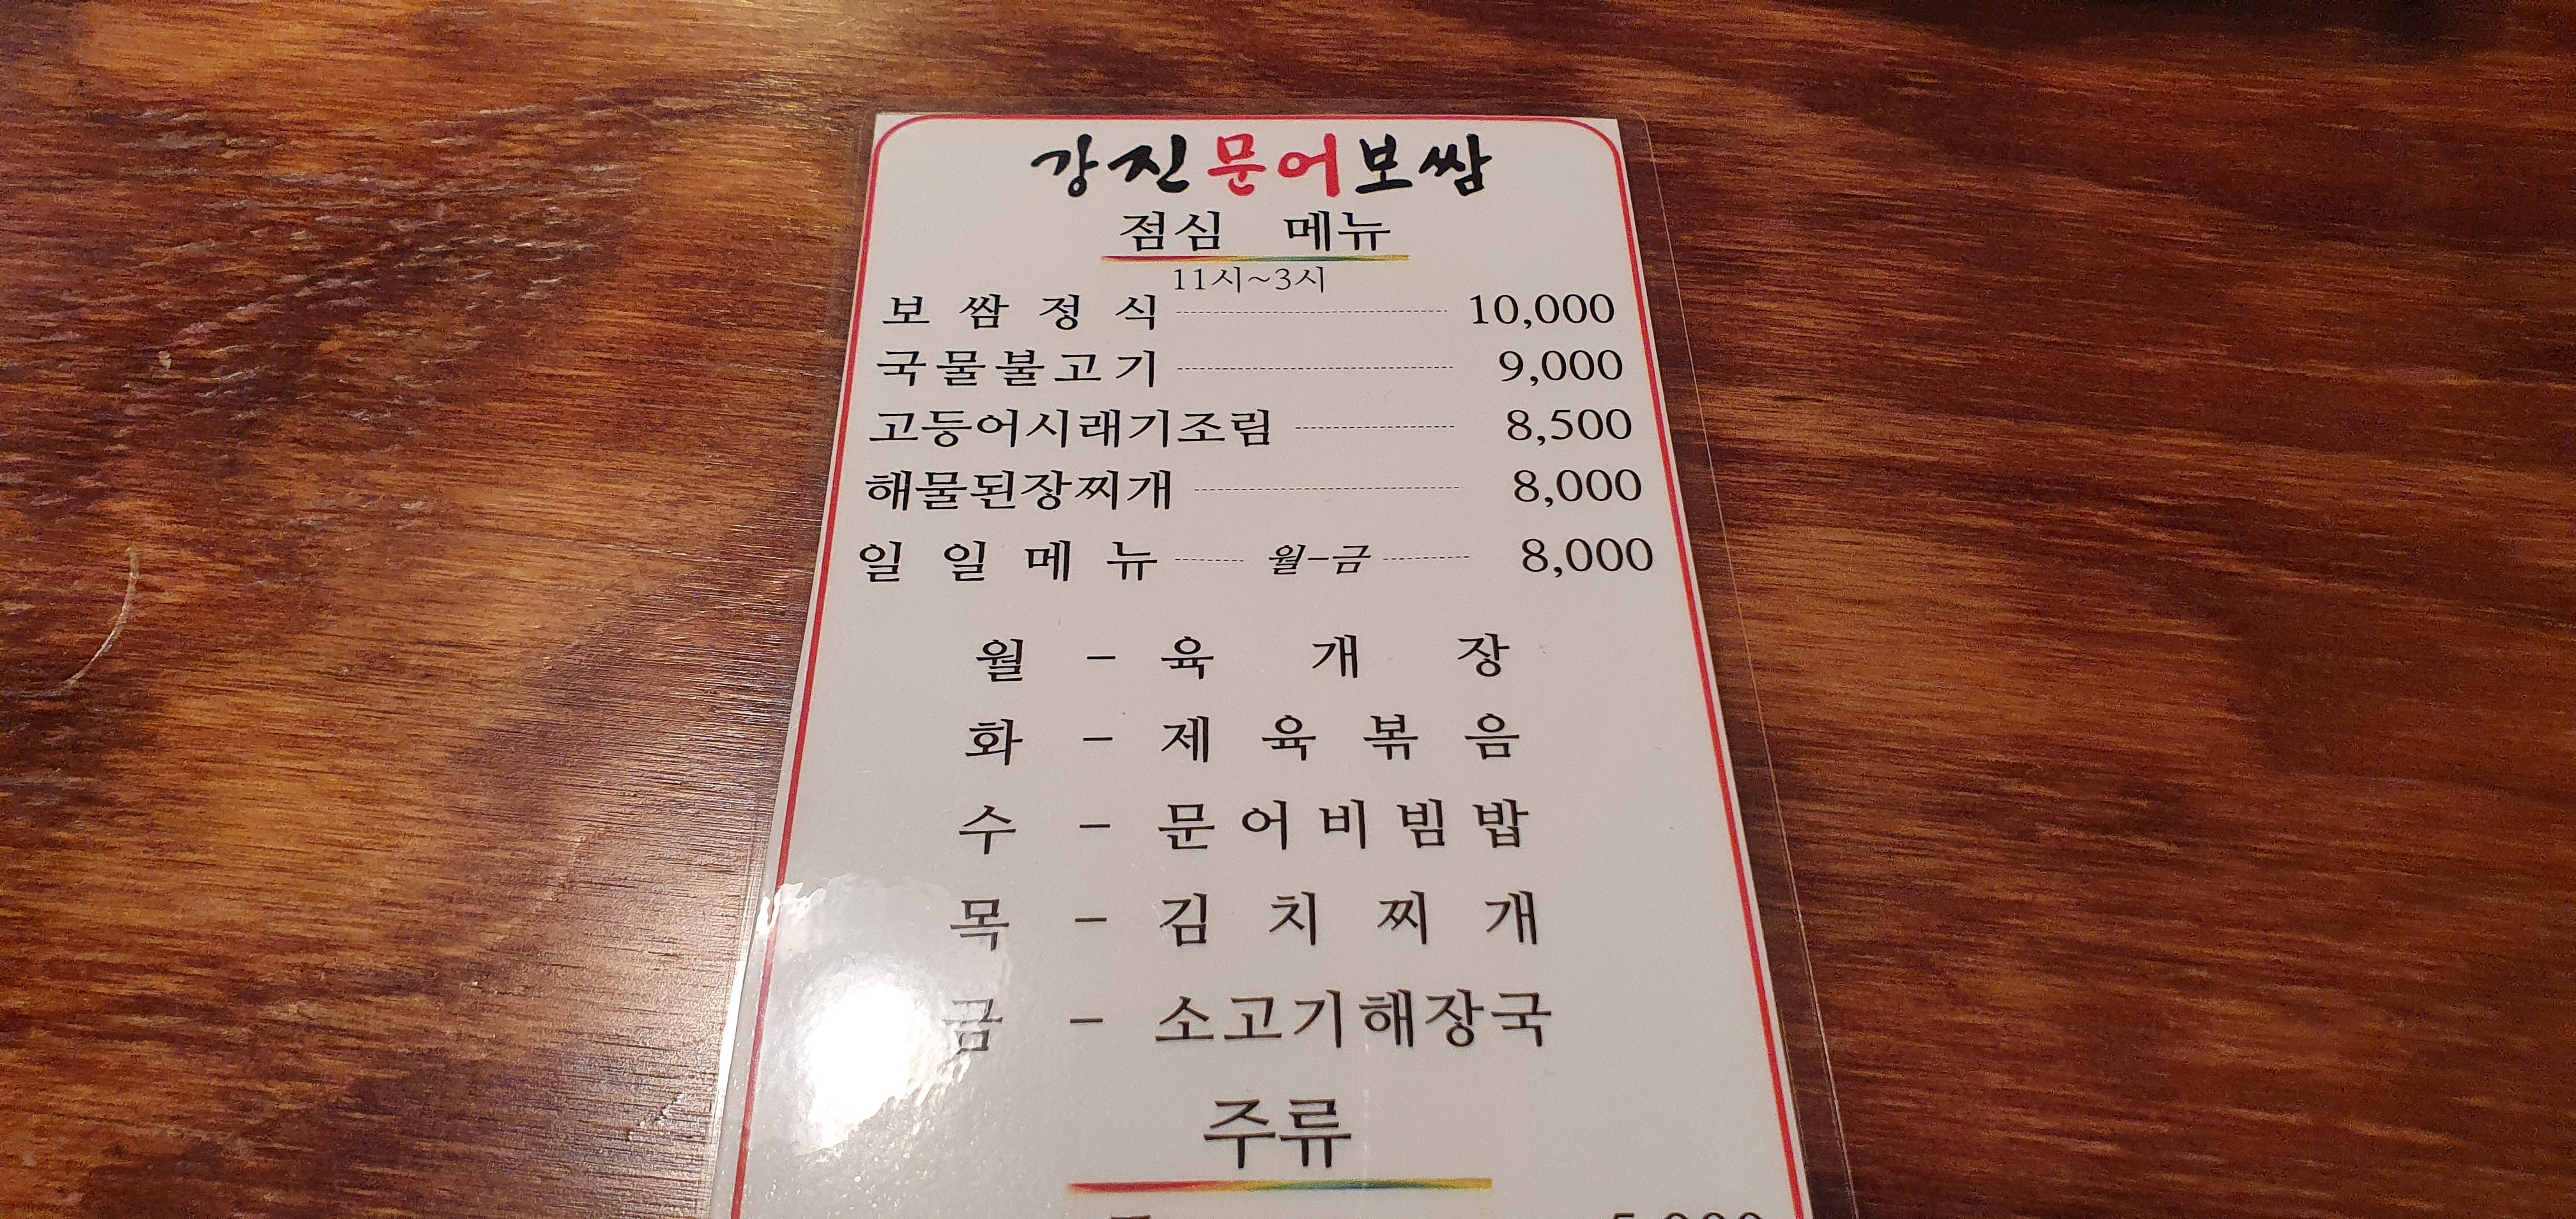 강진문어보쌈
점심 메뉴
11시~3시
보쌈정식 10,000
국물불고기 9,000
고등어시래기조림 8,500
해물된장찌개 8,000
일일메뉴 월-금 8,000
월 - 육개장
화 - 제육볶음
수 - 문어비빔밥
목 - 김치찌개
금 - 소고기해장국
주류